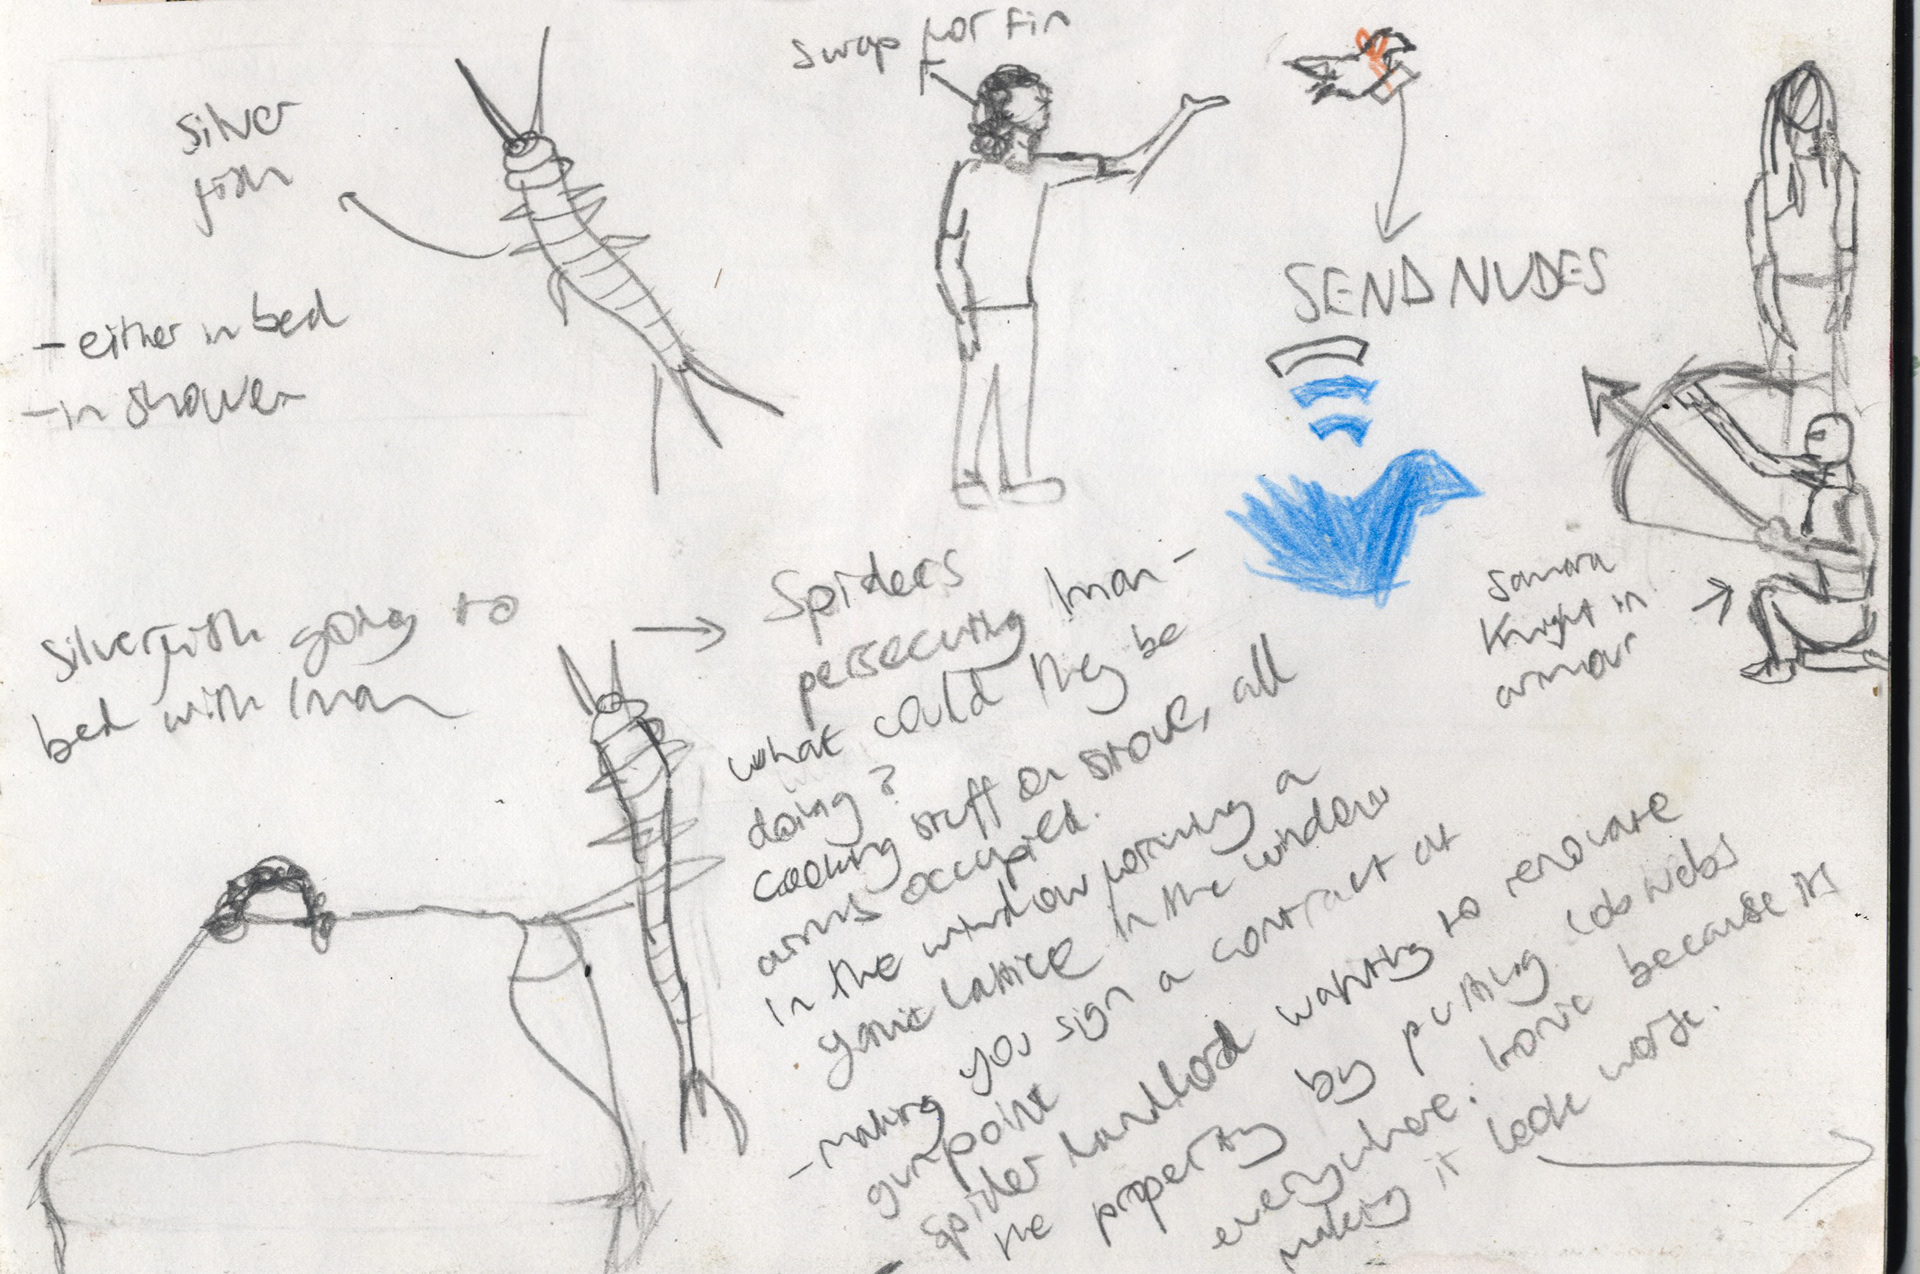 Silver
fish
- either in bed
- in shower
swap for Fin
SEND NUDES
Samara
Knight in
armour
Silverfish going to
bed with Iman
Spiders
persecuting Iman -
what could they be
doing?
cooking stuff on stove, all
arms occupied.
In the window forming a
lattice in the window
- making you sign a contract at
gunpoint
Spider landlord wanting to renovate
the property by putting cobwebs
everywhere. Ironic because its
making it look worse.